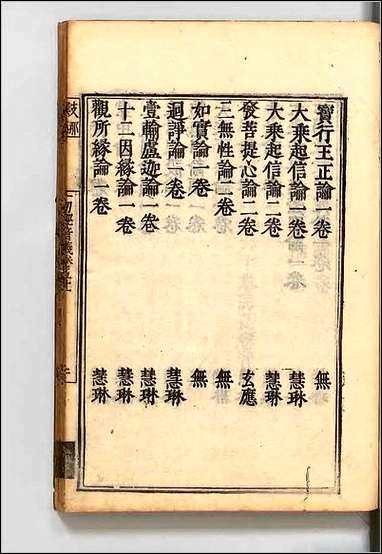 寶行王正論一卷 無
大乘起信論一卷 慧琳
大乘起信論二卷 慧琳
發菩提心論二卷 玄應
三無性論一卷 無
如實論一卷 無
迴諍論一卷 慧琳
壹輸盧迦論一卷 慧琳
十二因緣論一卷 慧琳
觀所緣論一卷 慧琳